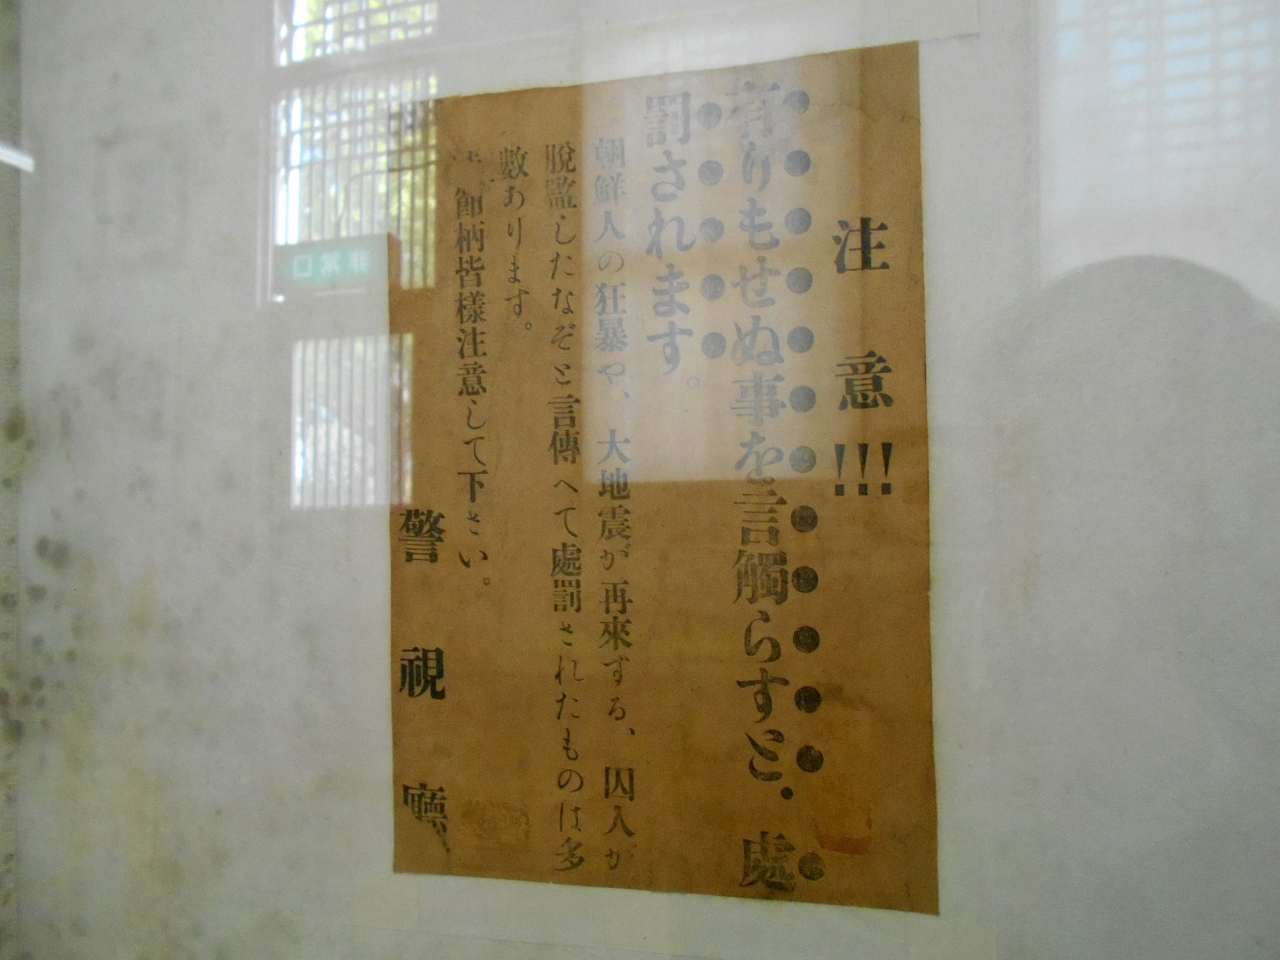 注意!!!
有りもせぬ事を言觸らすと、處
罰されます。
朝鮮人の狂暴や、大地震が再來する、囚人が
脫監したなぞと言傳へて處罰されたものは多
數あります。
節柄皆樣注意して下さい。
警視廳
非常口